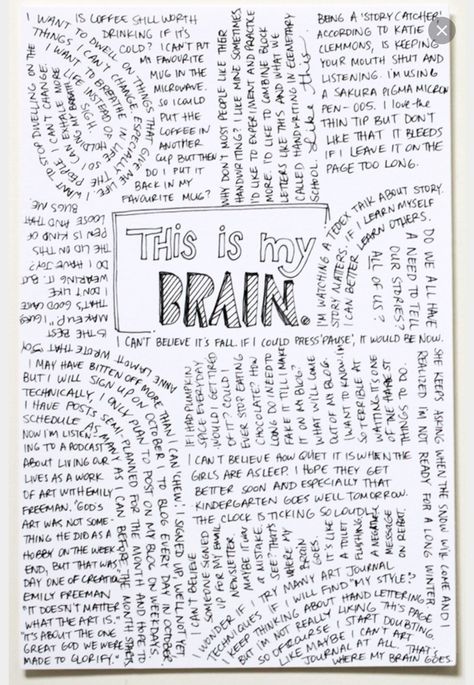 I WANT IS COFFEE STILL WORTH
DRINKING IF IT'S
COLD? I CAN'T PUT
MY FAVOURITE
MUG IN THE
MICROWAVE.
SO I COULD
PUT THE
COFFEE IN
ANOTHER
CUP BUT THEN
DO I PUT IT
BACK IN MY
FAVOURITE MUG?
I WANT TO DWELL ON THINGS THAT
THINGS I CAN'T CHANGE ESPECIALLY
I WANT TO BREATHE IN LIFE
LIFE INSTEAD OF
SIGH.
I WANT TO STOP DWELLING ON THE
PEOPLE I CAN'T CHANGE.
I EXHALE MORE
WHY DON'T MOST PEOPLE LIKE THEIR
HANDWRITING? I LIKE MINE SOMETIMES.
I'D LIKE TO EXPERIMENT AND PRACTICE
MORE. I'D LIKE TO COMBINE BLOCK
LETTERS LIKE THIS AND WHAT WE
CALLED HANDWRITING IN ELEMENTARY
SCHOOL. Like this.
BEING A 'STORY CATCHER'
ACCORDING TO KATIE
CLEMMONS, IS KEEPING
YOUR MOUTH SHUT AND
LISTENING. I'M USING
A SAKURA PIGMA MICRON
PEN - 005. I LOVE THE
THIN TIP BUT DON'T
LIKE THAT IT BLEEDS
IF I LEAVE IT ON THE
PAGE TOO LONG.
I'M WATCHING A TEDEX TALK ABOUT STORY.
STORY MATTERS. IF I LEARN MYSELF
I CAN BETTER LEARN OTHERS.
DO WE ALL HAVE
A NEED TO TELL
OUR STORIES?
ALL OF US?
THIS IS MY
BRAIN.
I CAN'T BELIEVE IT'S FALL. IF I COULD PRESS 'PAUSE', IT WOULD BE NOW.
ANNE LAMOTT WROTE THAT "JOY
IS THE BEST
MAKEUP." I GUESS
THAT'S GOOD CAUSE
I DON'T LIKE
WEARING IT. BUT
DO I HAVE JOY?
THE LID ON THIS
PEN IS KIND OF
LOOSE AND THAT
BUGS ME
I MAY HAVE BITTEN OFF MORE THAN I CAN CHEW. I SIGNED UP, WELL NOT YET
BUT I WILL SIGN UP ON OCTOBER 1 TO BLOG EVERY DAY OF OCTOBER.
TECHNICALLY, I ONLY PLAN TO POST ON MY BLOG ON WEEKDAYS
I HAVE POSTS SEMI-PLANNED FOR THE MONTH AND HOPE TO
SCHEDULE AS MANY AS I CAN BEFORE THE MONTH STARTS
NOW I'M LISTEN-
ING TO A PODCAST
ABOUT LIVING OUR
LIVES AS A WORK
OF ART WITH EMILY
FREEMAN. "GOD'S
ART WAS NOT SOME-
THING HE DID AS A
HOBBY ON THE WEEK
END, BUT THAT WAS
DAY ONE OF CREATION"
EMILY FREEMAN
"IT DOESN'T MATTER
WHAT THE ART IS."
"IT'S ABOUT THE ONE
GREAT GOD WE WERE
MADE TO GLORIFY."
IF I HAD PUMPKIN
SPICE EVERYDAY
WOULD I GET TIRED
OF IT? COULD I
EVER STOP EATING
CHOCOLATE? HOW
LONG DO I NEED TO
FAKE IT TILL I MAKE
IT ON MY BLOG?
WHAT WILL COME
OUT OF MY BLOG.
I WANT TO KNOW. I'M
SO TERRIBLE AT
WAITING. IT'S ONE
OF THE HARDEST
THINGS TO DO.
SHE KEEPS ASKING WHEN THE SNOW WILL COME AND I
REALIZED I'M NOT READY FOR A LONG WINTER
I CAN'T BELIEVE HOW QUIET IT IS WHEN THE
GIRLS ARE ASLEEP. I HOPE THEY GET
BETTER SOON AND ESPECIALLY THAT
KINDERGARTEN GOES WELL TOMORROW.
THE CLOCK IS TICKING SO LOUDLY.
I CAN'T BELIEVE
SOMEONE SIGNED
UP FOR MY EMAIL
NEWSLETTER.
MAYBE IT WAS
A MISTAKE.
SEE? THAT'S
WHERE MY
BRAIN
GOES.
IT'S LIKE
A TOILET
FLUSHING
A NEGATIVE
MESSAGE
ON REPEAT.
I WONDER IF I TRY MANY ART JOURNAL
TECHNIQUES IF I WILL FIND "MY STYLE?"
I KEEP THINKING ABOUT HAND LETTERING
BUT I'M NOT REALLY LIKING THIS PAGE
SO OF COURSE I START DOUBTING
LIKE MAYBE I CAN'T ART
JOURNAL AT ALL. THAT'S
WHERE MY BRAIN GOES.